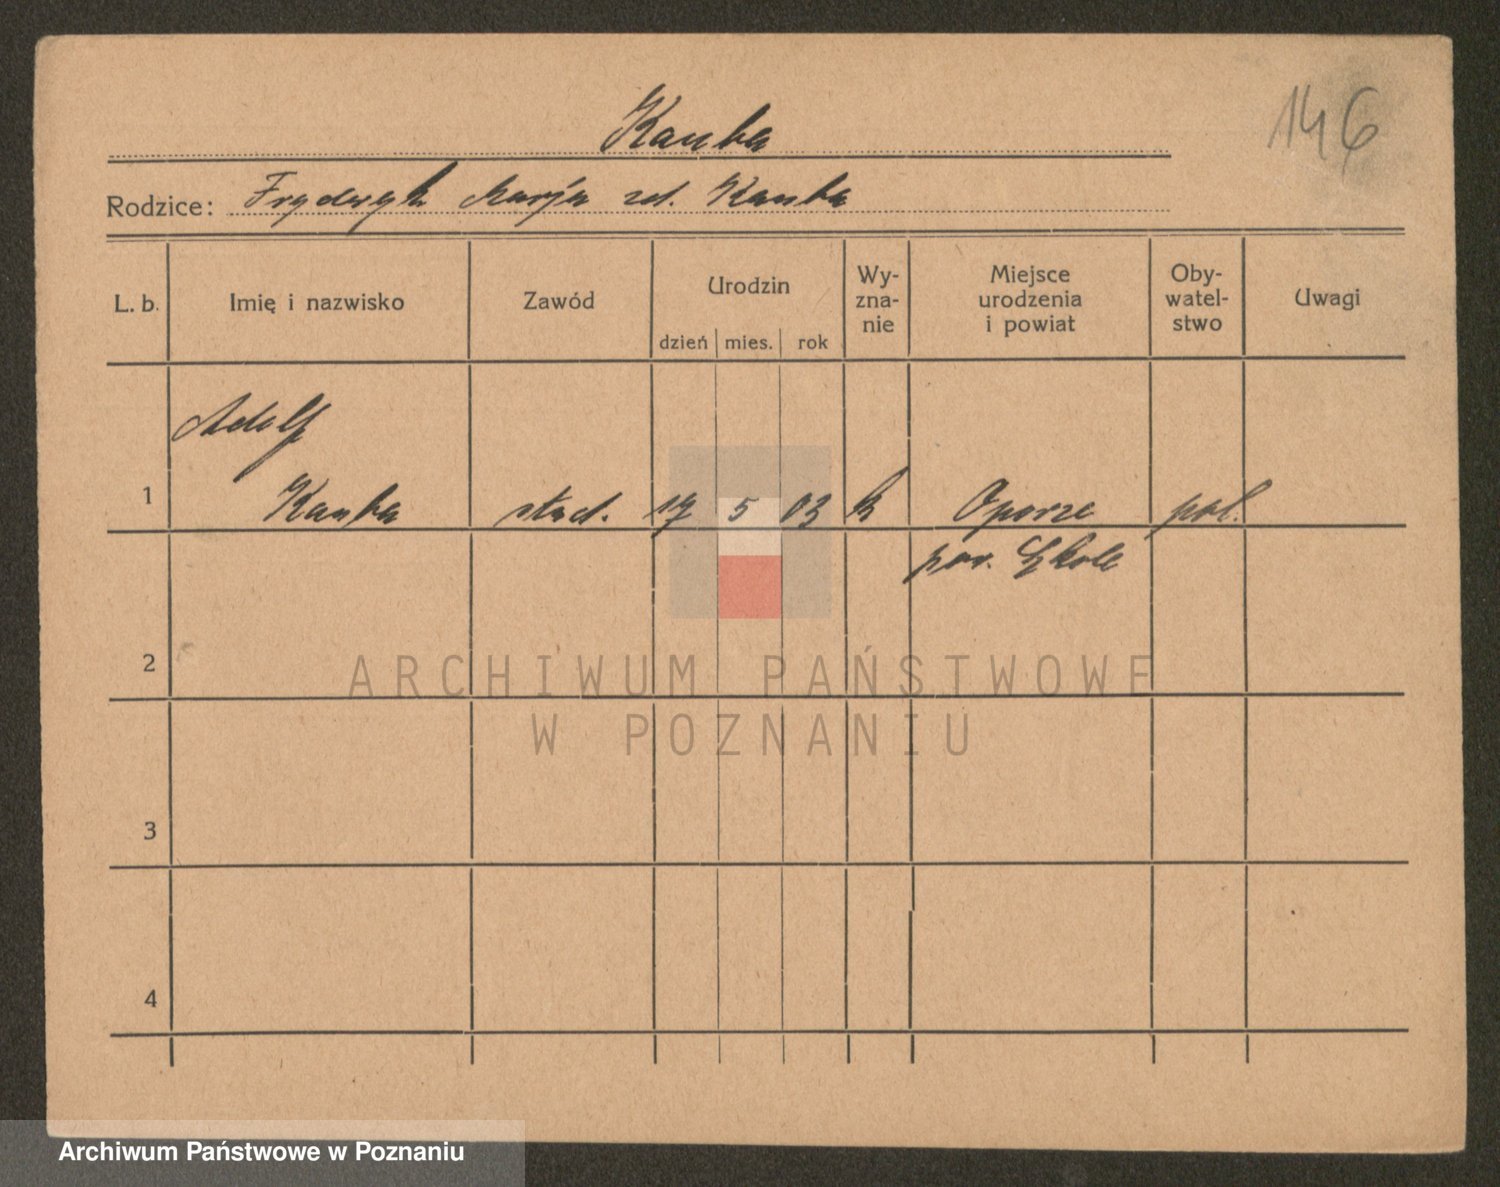 146
Kauba
Rodzice: Fryderyk Marja zd. Kauba
L. b. Imię i nazwisko Zawód Urodzin dzień mies. rok Wy-zna-nie Miejsce urodzenia i powiat Oby-watel-stwo Uwagi
Adolf
1 Kauba stud. 17 5 03 k Oporze pol.
pow. Skole
2
3
4
ARCHIWUM PAŃSTWOWE
W POZNANIU
Archiwum Państwowe w Poznaniu